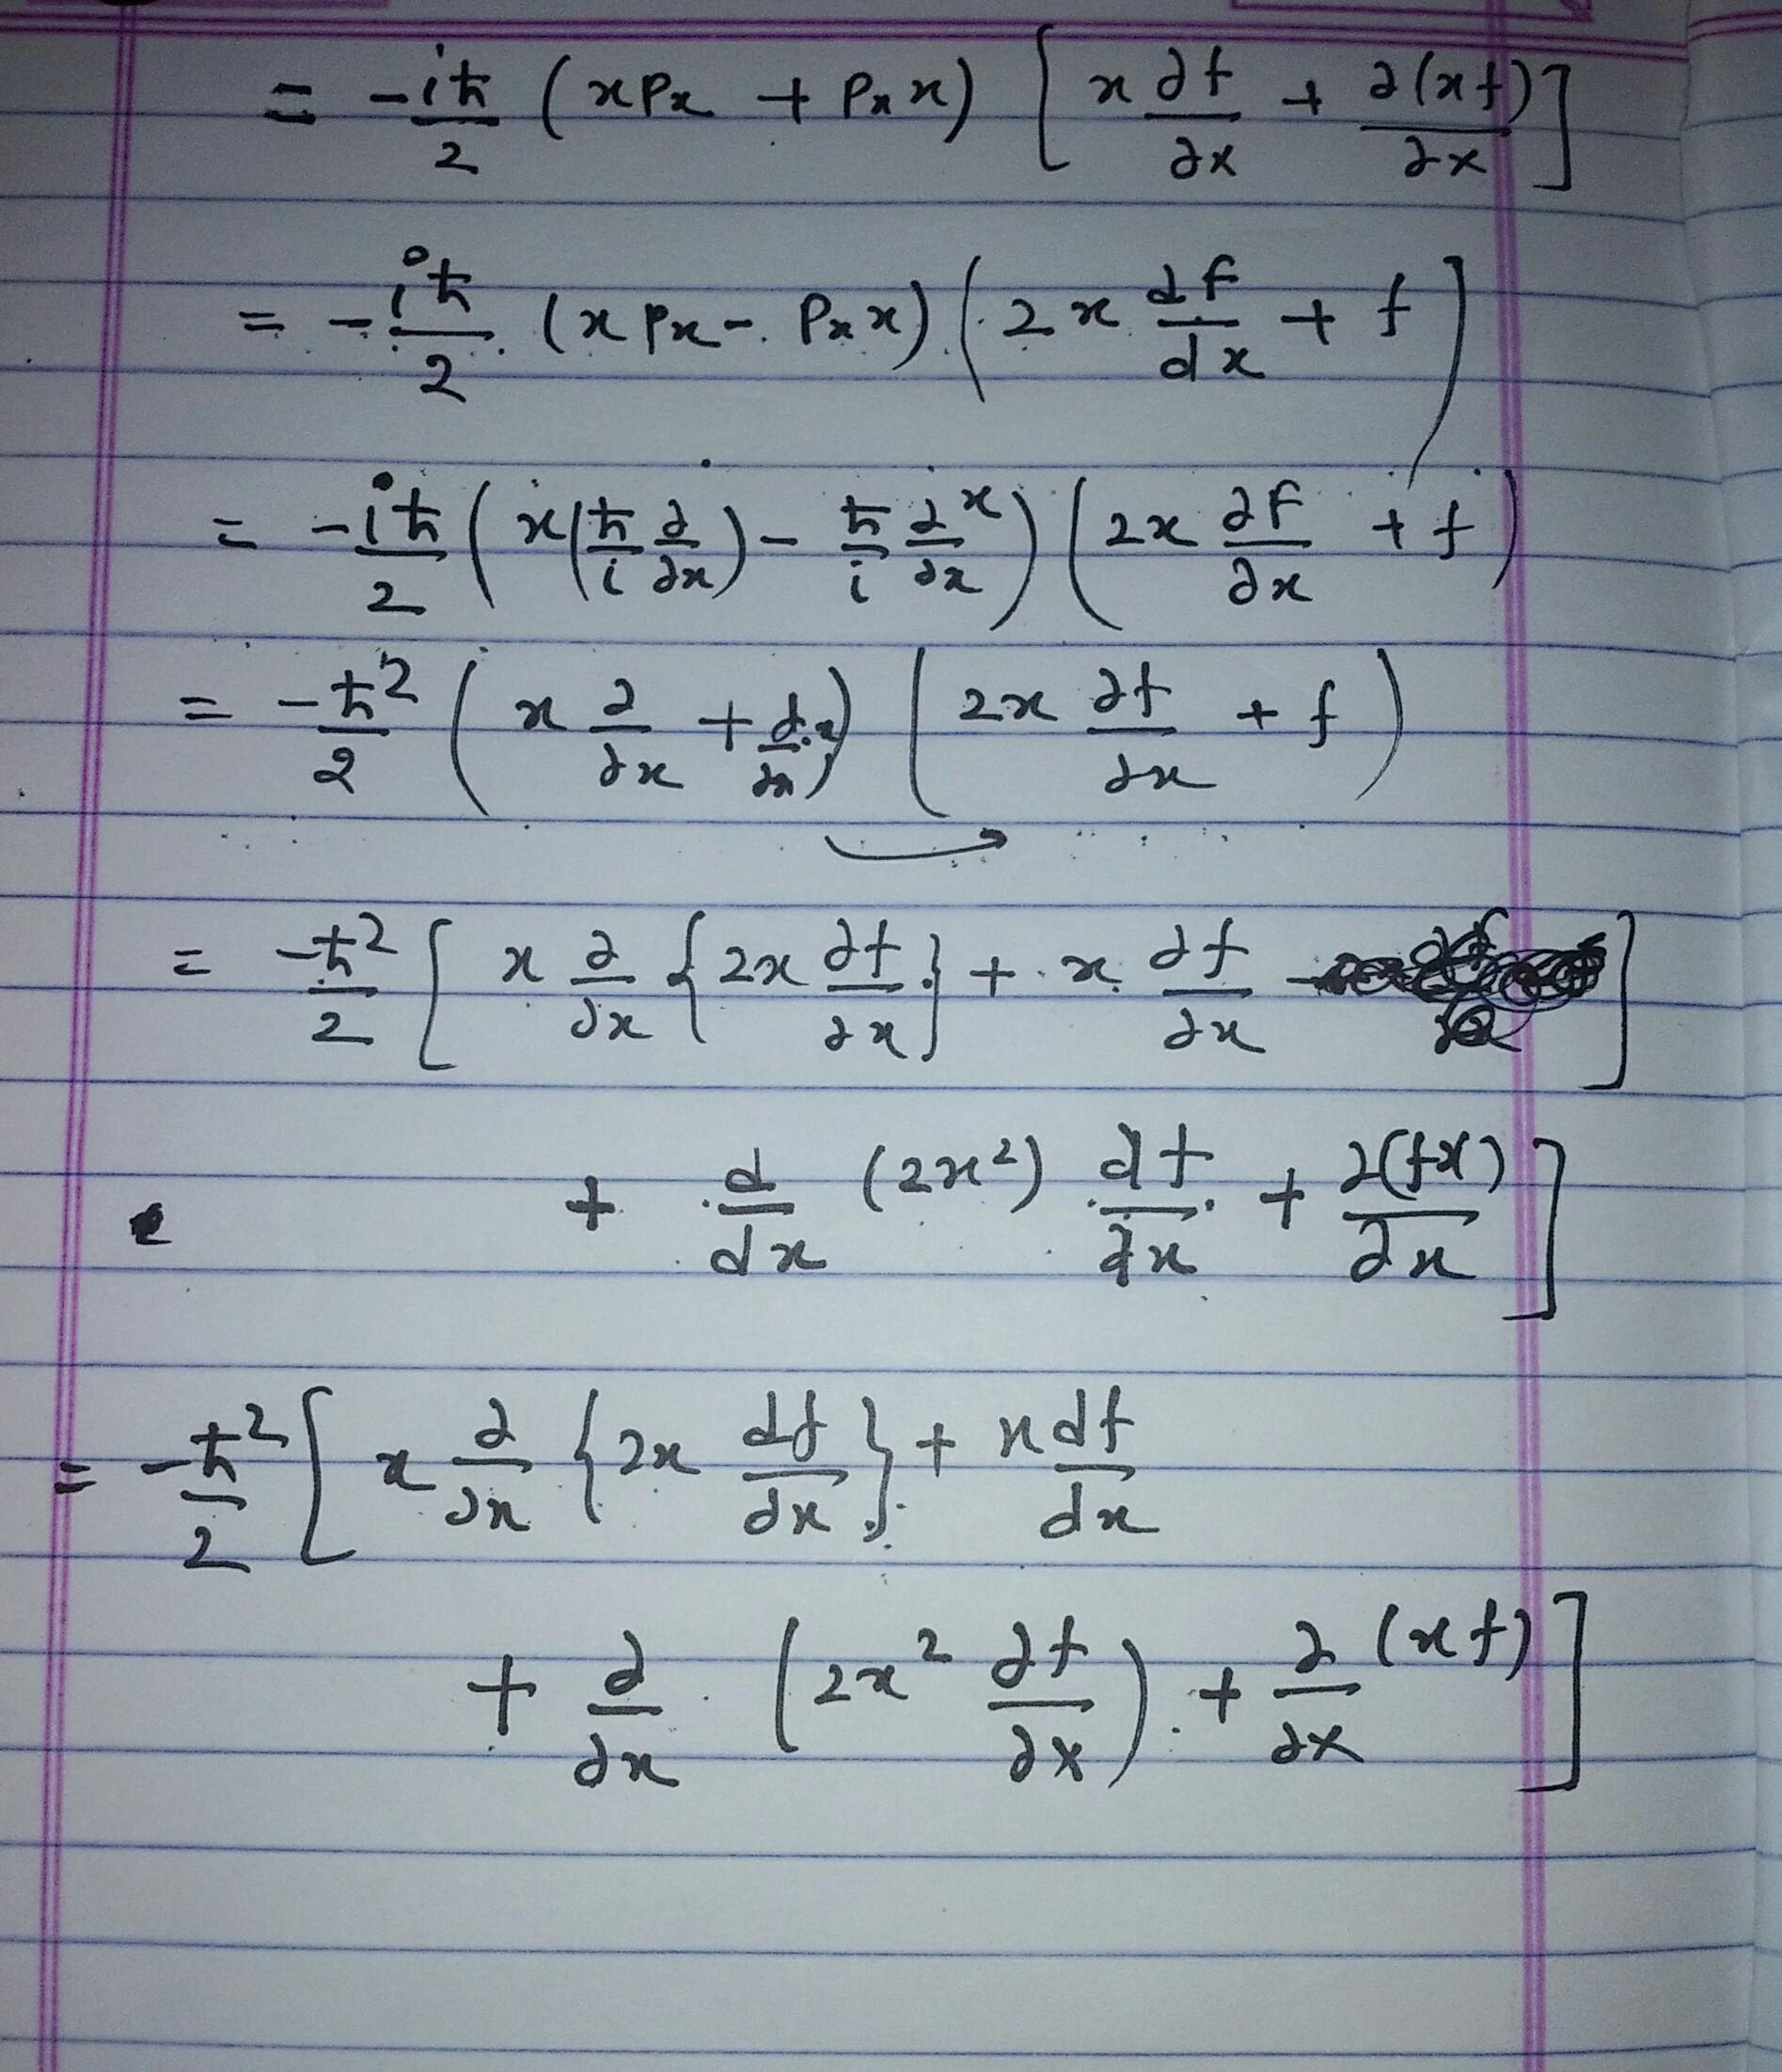 = -iħ/2 (xPx + Pxx) [x ∂f/∂x + ∂(xf)/∂x]
= -iħ/2 (xPx - Pxx) (2x df/dx + f)
= -iħ/2 (x(ħ/i ∂/∂x) - ħ/i ∂/∂x x) (2x ∂f/∂x + f)
= -ħ²/2 (x ∂/∂x + ∂/∂x x) (2x ∂f/∂x + f)
= -ħ²/2 [x ∂/∂x {2x ∂f/∂x} + x ∂f/∂x ]
+ d/dx (2x²) ∂f/∂x + ∂(fx)/∂x]
= -ħ²/2 [x ∂/∂x {2x df/dx} + x df/dx
+ ∂/∂x (2x² ∂f/∂x) + ∂/∂x (xf)]